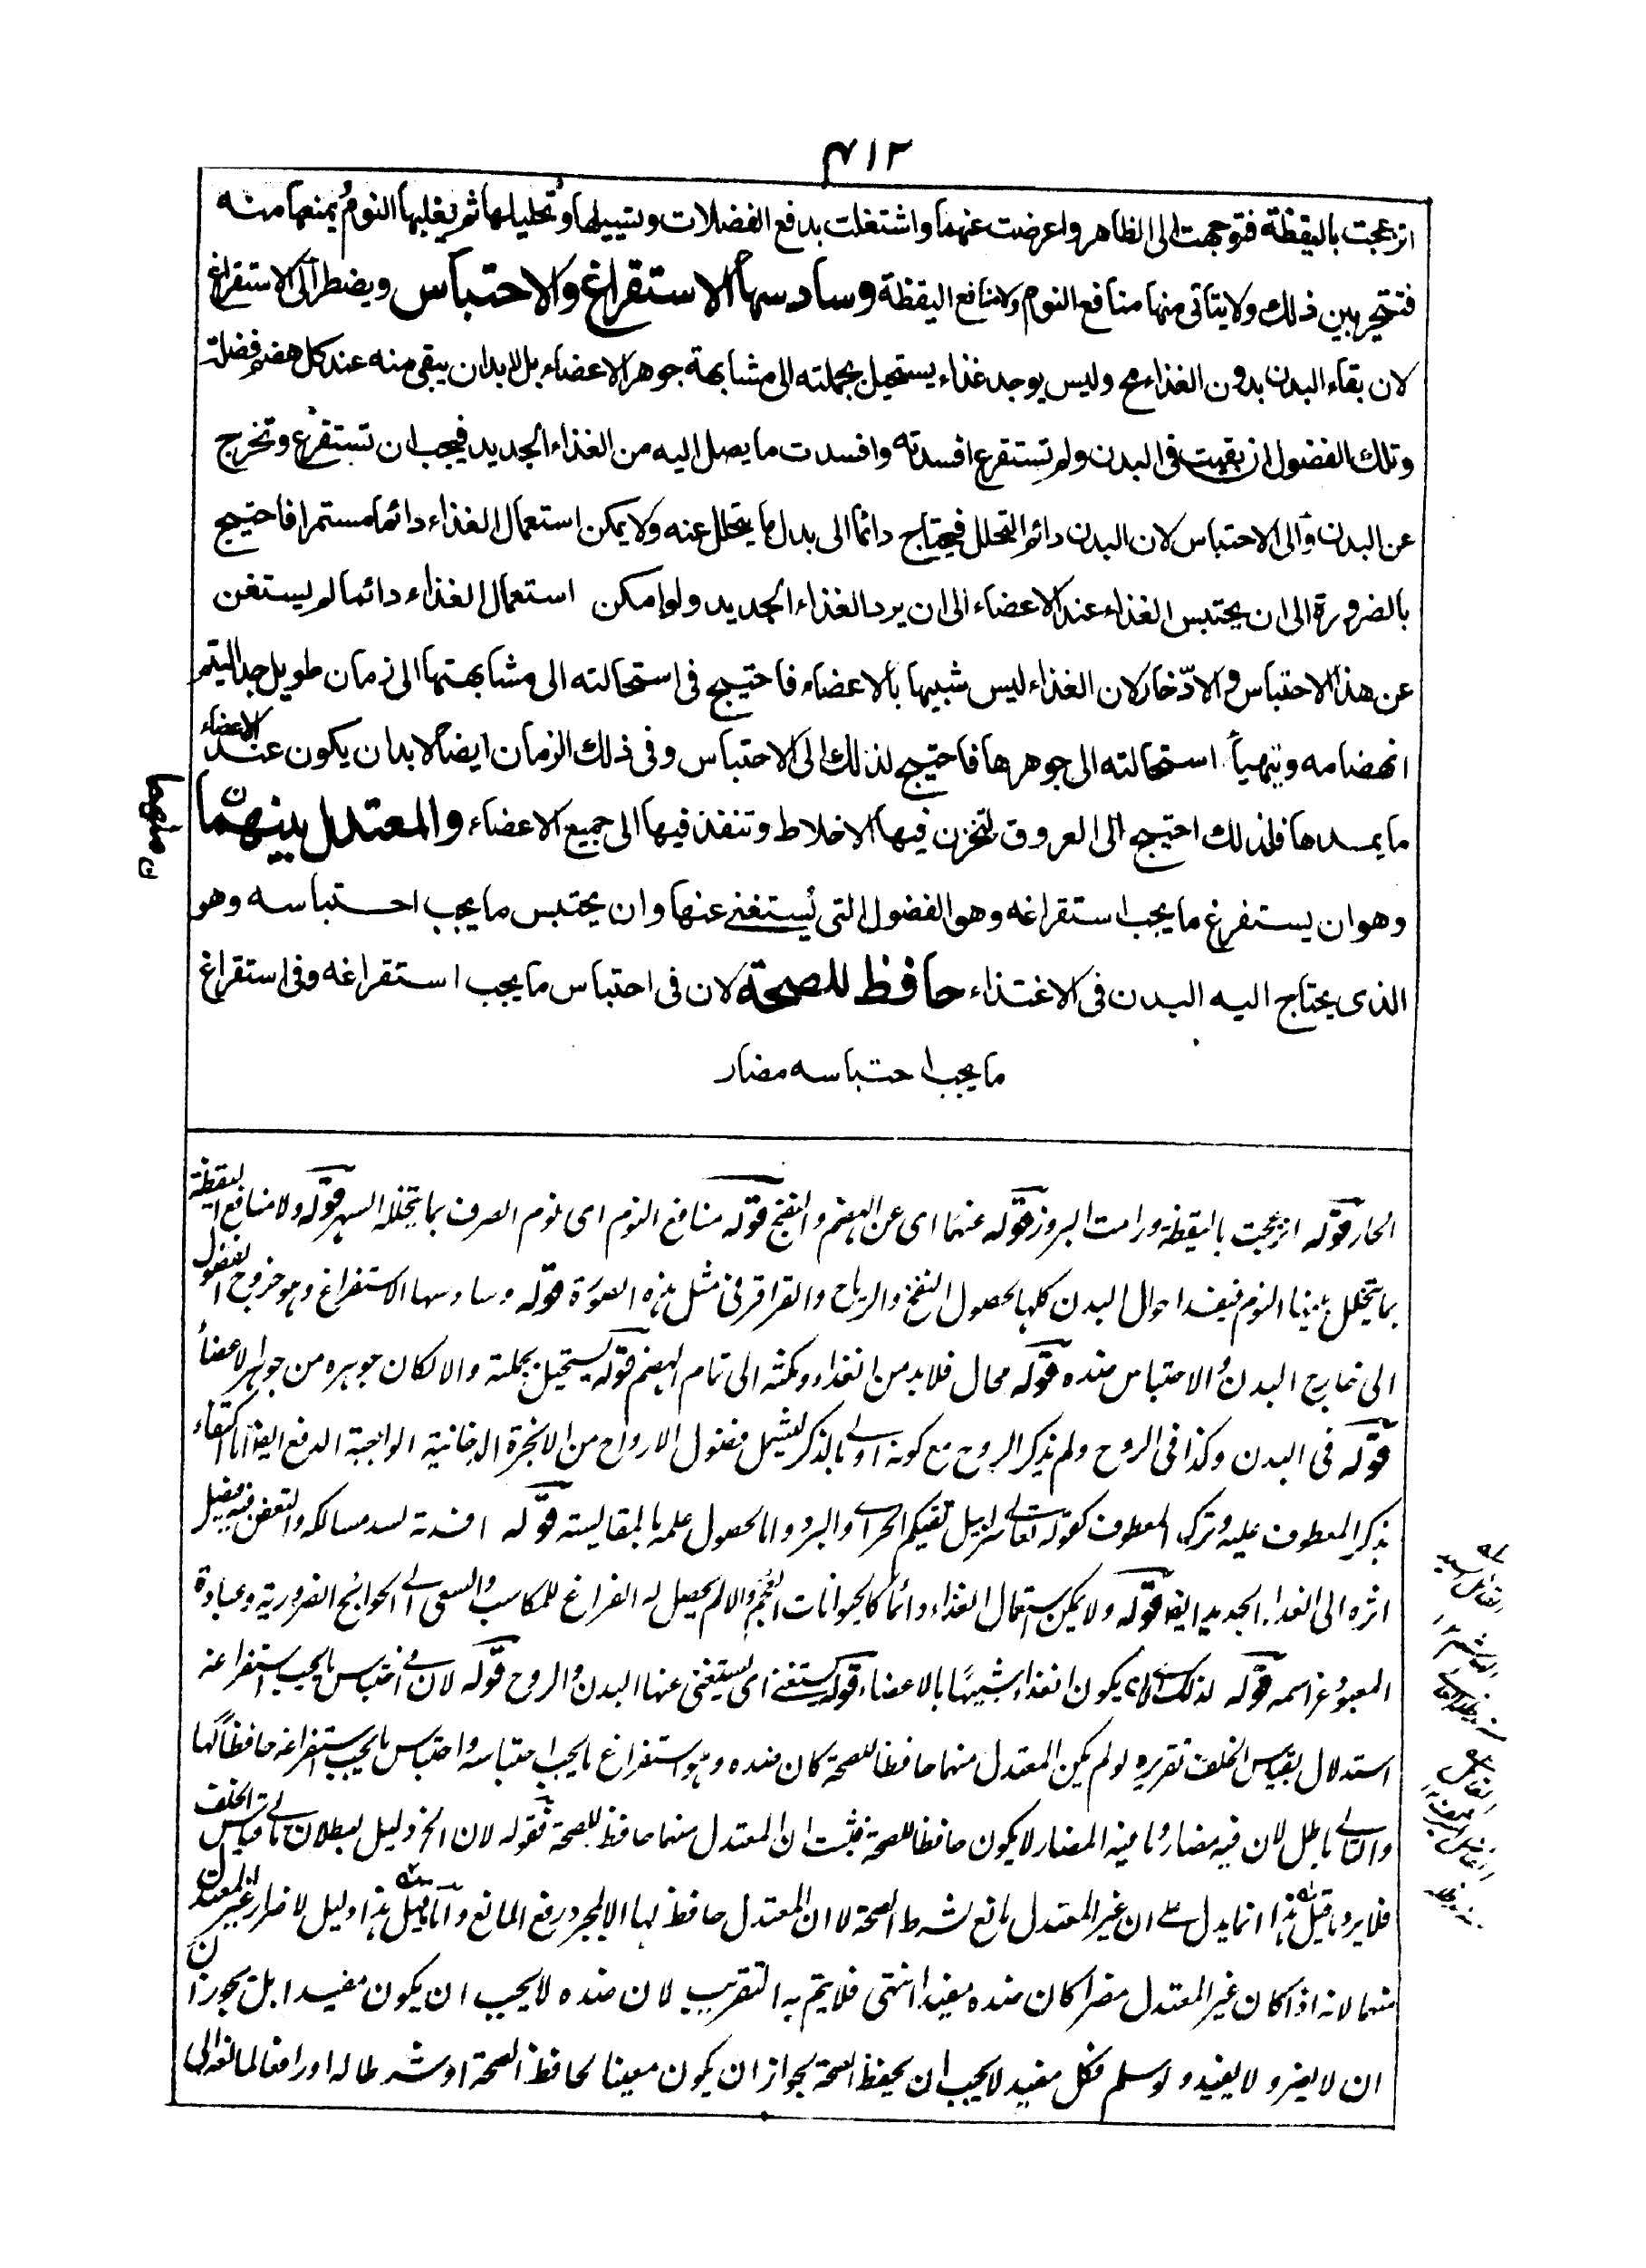 ۴۱۲
انزعجت باليقظة فتوجهت الى الظاهر واعرضت عنهما واشتغلت بدفع الفضلات وتسييلها وتحليلها ثم يغلبها النوم يمنعها منه
فتتحير بين ذلك ولا يتاتى منها منافع النوم ولا منافع اليقظة وسادسها الاستفراغ والاحتباس ويضطر الى الاستفراغ
لان بقاء البدن بدون الغذاء مح وليس يوجد غذاء يستحيل بجملته الى مشابهة جوهر الاعضاء بل لا بد ان يبقى منه عند كل هضم فضلة
وتلك الفضول ان بقيت فى البدن ولم تستفرغ افسدته وافسدت ما يصل اليه من الغذاء الجديد فيجب ان تستفرغ وتخرج
عن البدن والى الاحتباس لان البدن دائم التحلل فيحتاج دائما الى بدل ما يتحلل عنه ولا يمكن استعمال الغذاء دائما مستمرا فاحتيج
بالضرورة الى ان يحتبس الغذاء عند الاعضاء الى ان يرد الغذاء الجديد ولو امكن استعمال الغذاء دائما لم يستغن
عن هذا الاحتباس والادّخار لان الغذاء ليس شبيها بالاعضاء فاحتيج فى استحالته الى مشابهتها الى زمان طويل جدا ليتم
انهضامه ويتهيأ استحالته الى جوهرها فاحتيج لذلك الى الاحتباس وفى ذلك الزمان ايضا لا بد ان يكون عند الاعضاء
ما يمدها فلذلك احتيج الى العروق لتخزن فيها الاخلاط وتنفذ فيها الى جميع الاعضاء والمعتدل بينهما
منهما ن
وهو ان يستفرغ ما يجب استفراغه وهو الفضول التى يُستغنى عنها وان يحتبس ما يجب احتباسه وهو
الذى يحتاج اليه البدن فى الاغتذاء حافظ للصحة لان فى احتباس ما يجب استفراغه وفى استفراغ
ما يجب احتباسه مضار
الحار قوله انزعجت باليقظة ورامت البروز قوله عنهما اى عن الهضم والنضج قوله منافع النوم اى نوم الصرف بما يتخلله السهر قوله ولا منافع اليقظة
بما يتخلل بينها النوم فيفسد احوال البدن كلها لحصول النفخ والرياح والقراقر فى مثل هذه الصورة قوله وسادسها الاستفراغ وهو خروج الفضول
الى خارج البدن والاحتباس ضده قوله محال فلا بد من الغذاء ومكثه الى تمام الهضم قوله يستحيل بجملته والا لكان جوهره من جواهر الاعضاء
قوله فى البدن وكذا فى الروح ولم يذكر الروح مع كونه اولى بالذكر ليشمل فضول الارواح من الابخرة الدخانية الواجبة الدفع ايضا اما اكتفاء
بذكر المعطوف عليه وترك المعطوف كقوله تعالى سرابيل تقيكم الحر اى والبرد واما لحصول علمه بالمقايسة قوله افسدته لسد مسالكه والتعفن فيه فيصل
اثره الى الغذاء الجديد ايضا قوله ولا يمكن استعمال الغذاء دائما كالحيوانات العجم والا لم يحصل له الفراغ للمكاسب والسعى الى الحوائج الضرورية وعبادة
المعبود عز اسمه قوله لذلك اى لان لا يكون الغذاء شبيها بالاعضاء قوله يستغنى اى يستغنى عنها البدن والروح قوله لان فى احتباس ما يجب استفراغه
استدلال بقياس الخلف تقريره لو لم يكن المعتدل منهما حافظا للصحة كان ضده وهو استفراغ ما يجب احتباسه واحتباس ما يجب استفراغه حافظا لها
والتالى باطل لان فيه مضار وما فيه المضار لا يكون حافظا للصحة فثبت ان المعتدل منهما حافظ للصحة فقوله لان الخ دليل لبطلان تالى قياس الخلف
فلا يرد ما قيل هذا انما يدل على ان غير المعتدل مانع لشرط الصحة لا ان المعتدل حافظ لها الا بمجرد رفع المانع واما ما قيل هذا دليل لاضرار غير المعتدل
منهما لانه اذا كان غير المعتدل مضرا كان ضده مفيدا انتهى فلا يتم به التقريب لان ضده لا يجب ان يكون مفيدا بل يجوز ان
ان لا يضر ولا يفيد ولو سلم فكل مفيد لا يجب ان يحفظ الصحة لجواز ان يكون معينا لحافظ الصحة او شرطا له او رافعا لمانعه الى